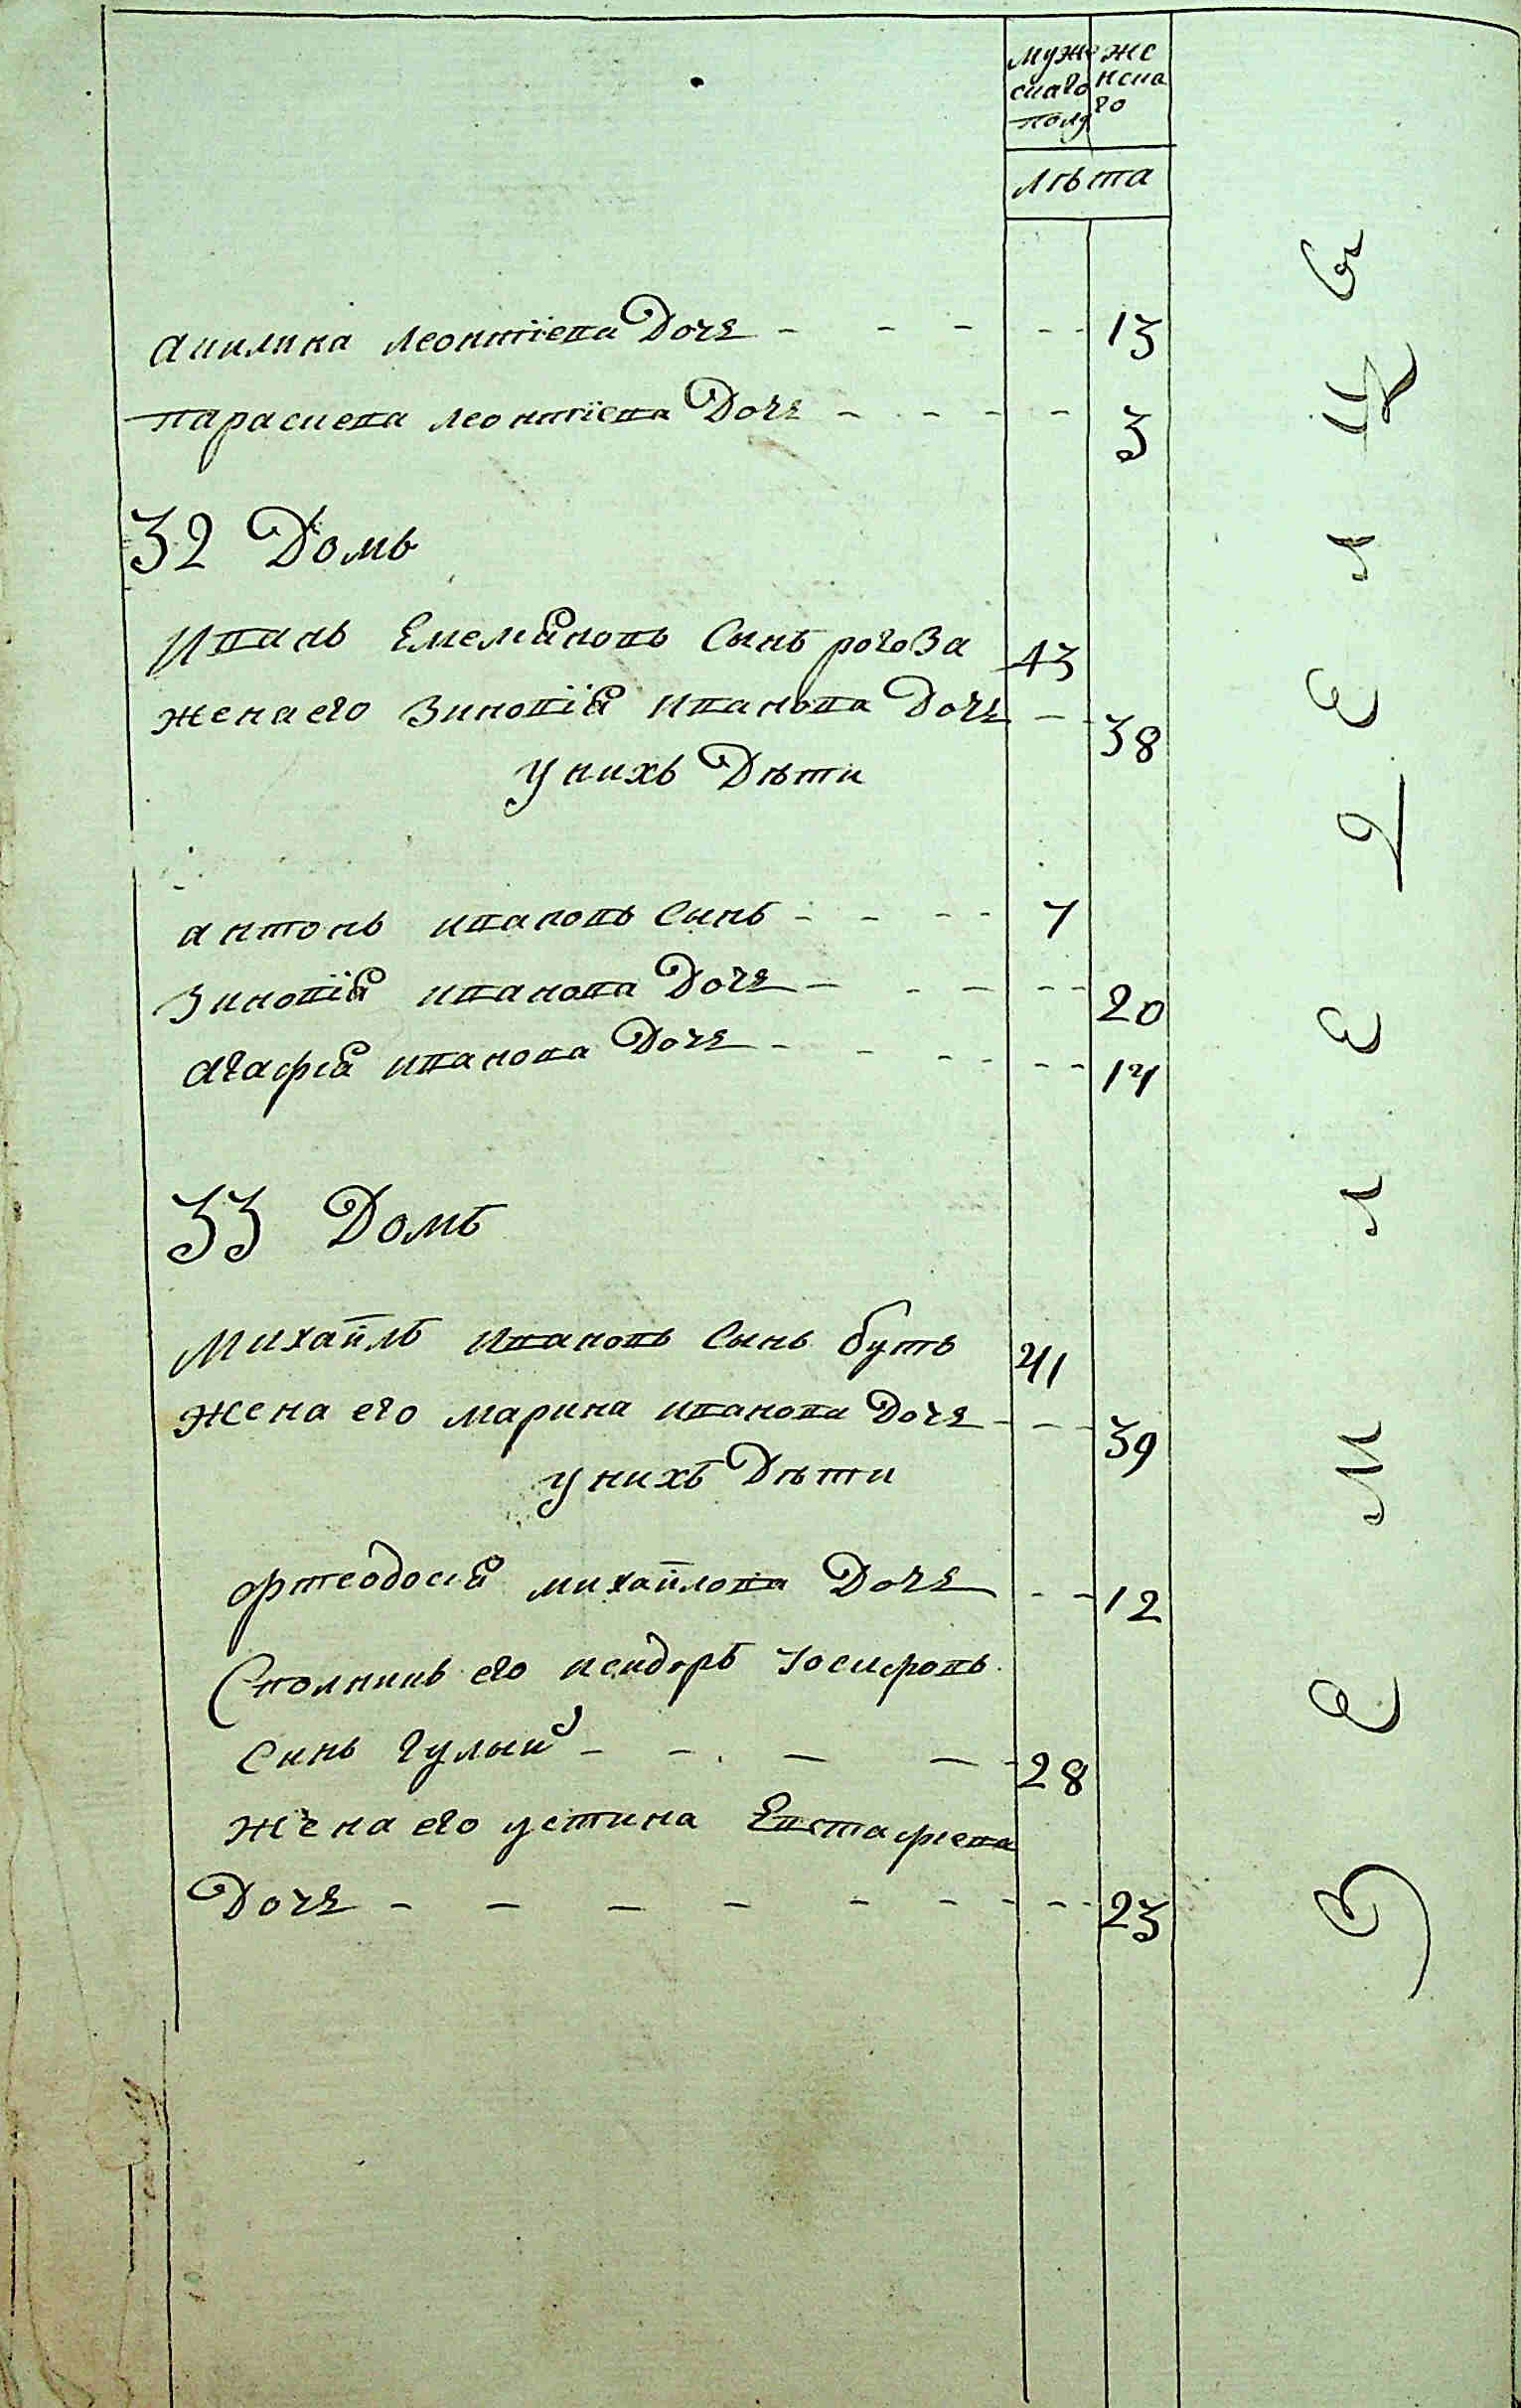 мужескаго полу	женскаго
лѣта
акилина леонтіева Дочь - - - - - 13
параскева леонтіева Дочь - - - - 3
32 Домъ
Иванъ Емеліановъ Сынъ рогоза 43
жена его Зиновіа иванова Дочь - - 38
у нихъ Дѣти
антонъ ивановъ Синъ - - - - 7
Зиновіа иванова Дочь - - - - - 20
агафіа иванова Дочь - - - - - - 14
33 Домъ
Михаилъ ивановъ Синъ бутъ 41
жена его марина иванова Дочь - - - 39
у нихъ Дѣти
фтеодосіа михайлова Дочь - - 12
Сполникъ его исидоръ Іосифовъ
Синъ гулый - - - - 28
жена его устина Евстафіева
Дочь - - - - - - - - - 23
землемеръ